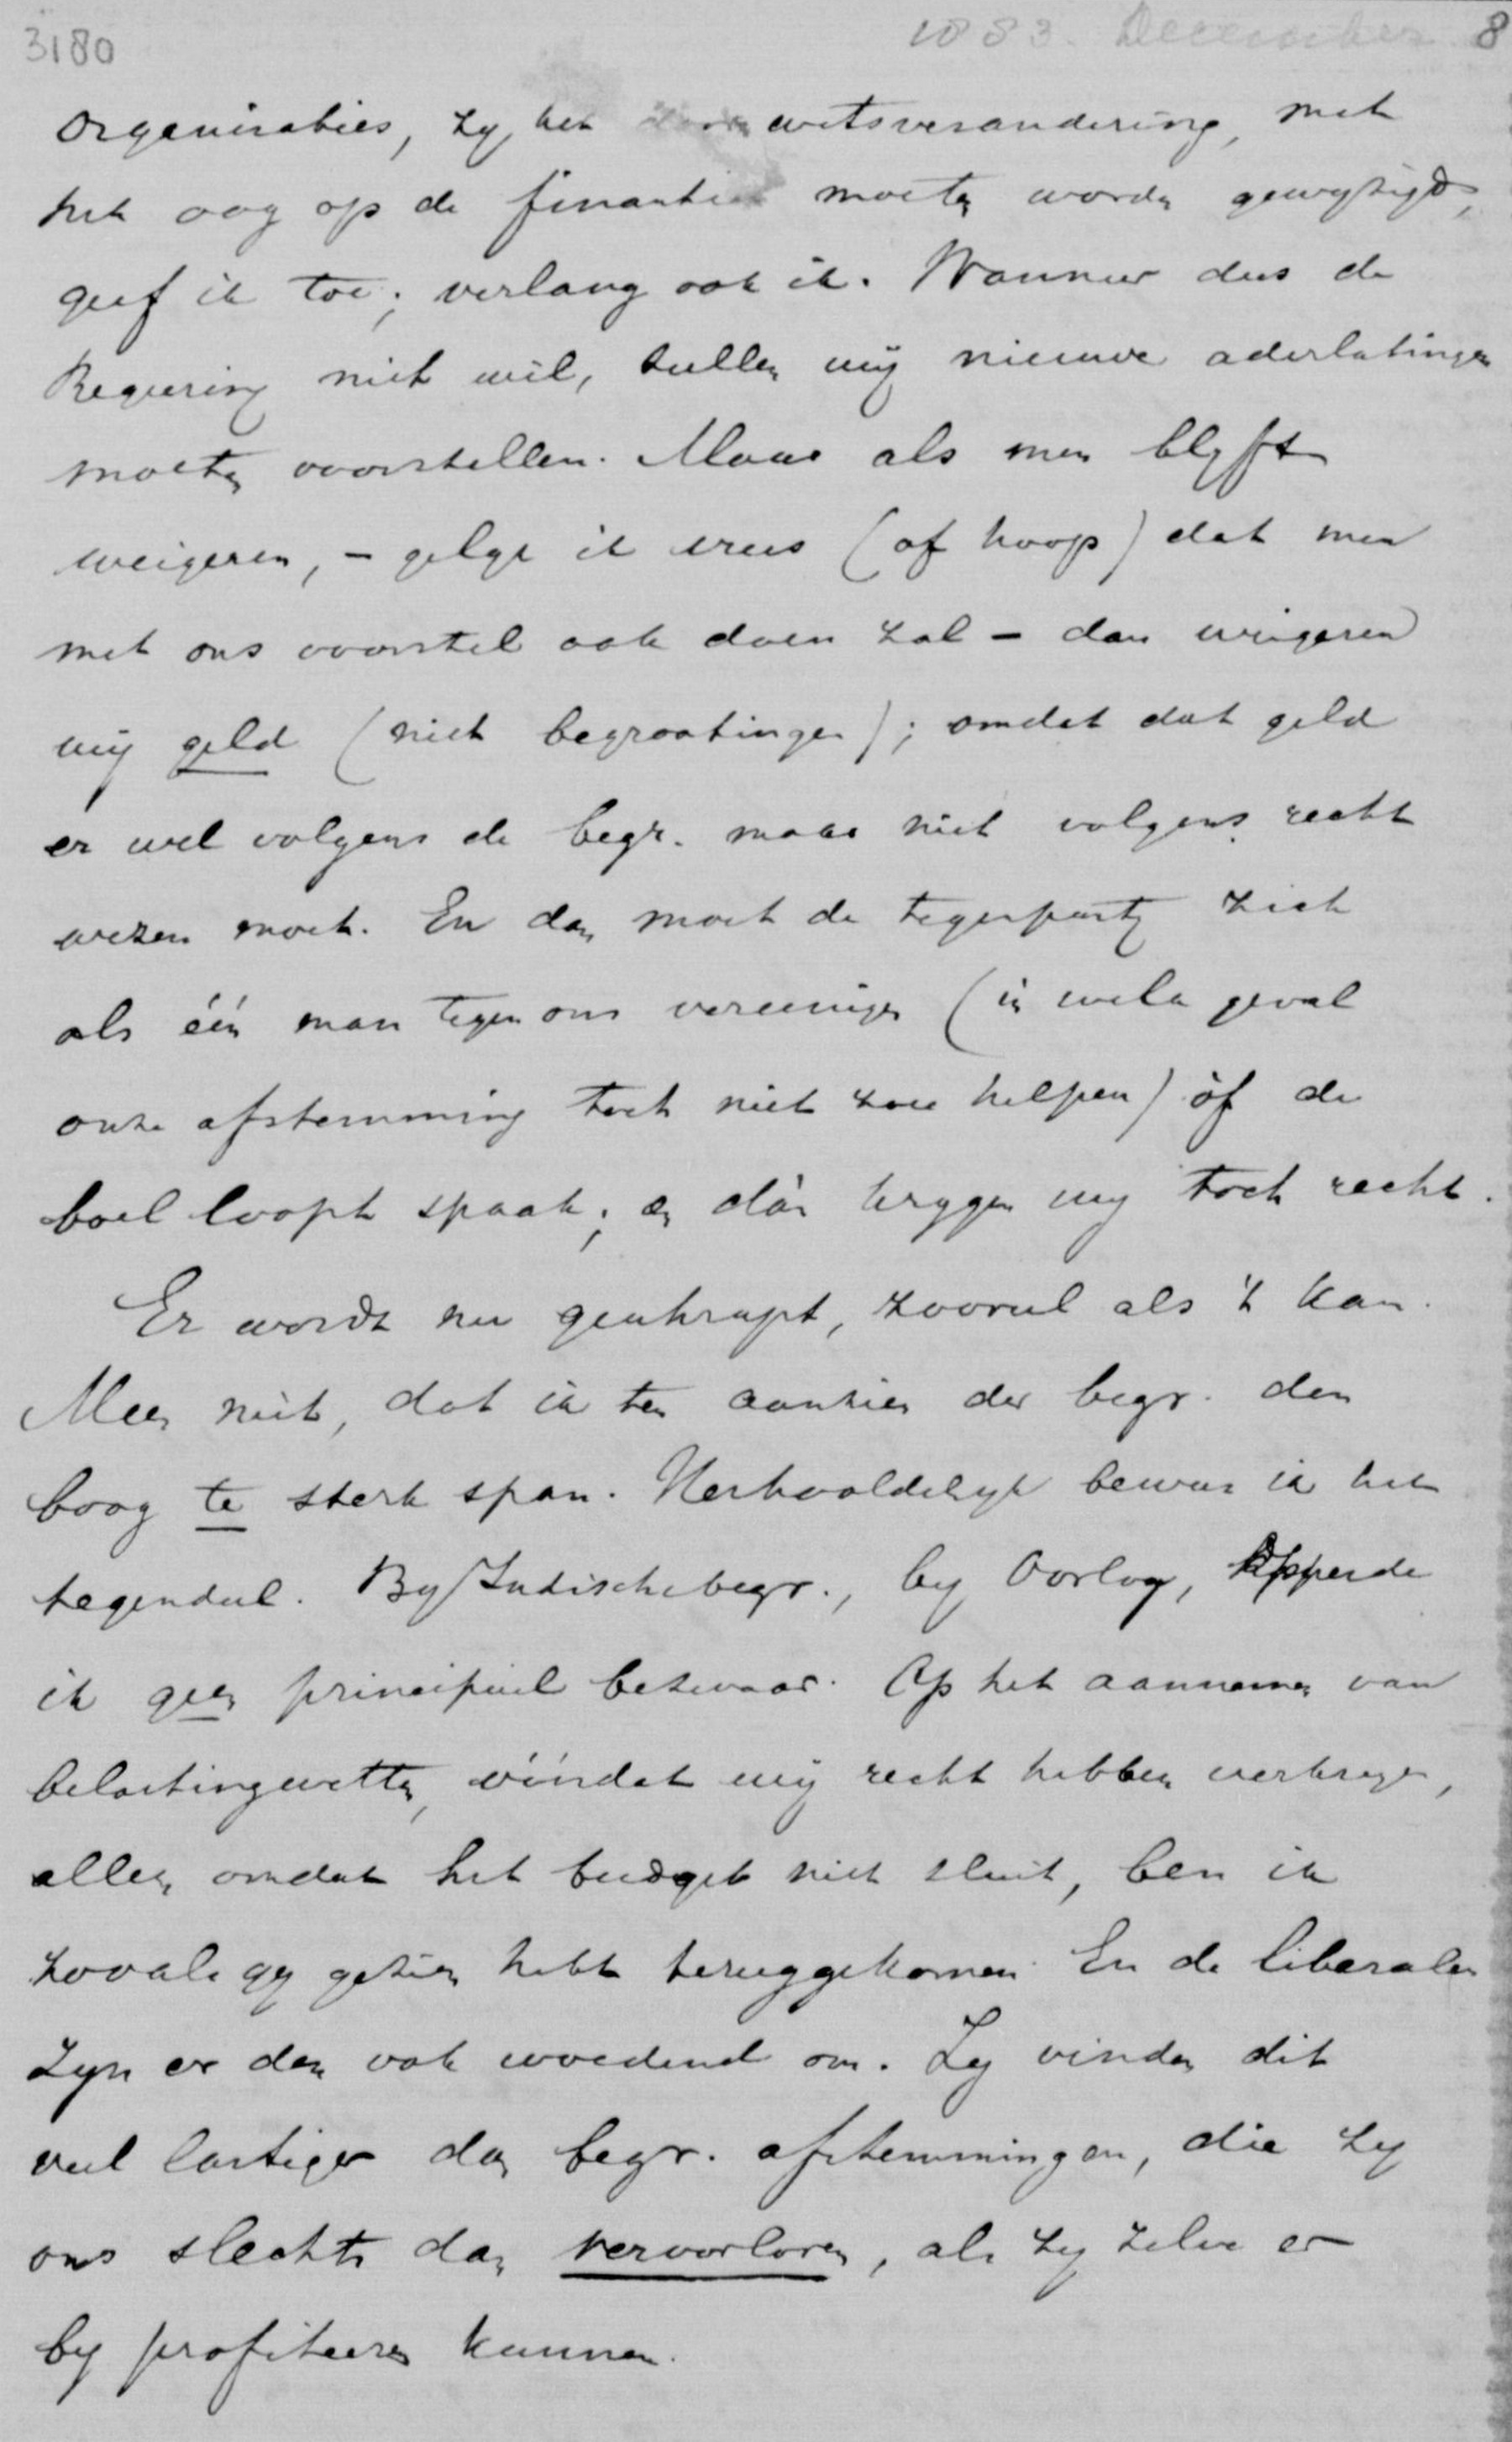 3180 1883. December 8
organisaties, zy het door wetsverandering, met
het oog op de finantien moeten worden gewyzigd,
geef ik toe; verlang ook ik. Wanneer dus de
Regeering niet wil, zullen wij nieuwe aderlatingen
moeten voorstellen. Maar als men blyft
weigeren, – gelyk ik vrees (of hoop) dat men
met ons voorstel ook doen zal – dan weigeren
wij geld (niet begrootingen); omdat dat geld
er wel volgens de begr. maar niet volgens recht
wezen moet. En dan moet de tegenparty zich
als één man tegen ons vereenigen (in welk geval
onze afstemming toch niet zou helpen) òf de
boel loopt spaak; en dán krygen wy toch recht.
Er wordt nu geschrapt, zooveel als 't kan.
Meen niet, dat ik ten aanzien der begr. den
boog te sterk span. Herhaaldelyk bewees ik het
tegendeel. By Indische begr., by Oorlog, opperde
ik geen principieel bezwaar. Op het aannemen van
belastingwetten, vóórdat wij recht hebben verkregen,
alleen omdat het budget niet sluit, ben ik
zooals gy gezien hebt teruggekomen. En de liberalen
zyn er dan ook woedend om. Zy vinden dit
veel lastiger dan begr. afstemmingen, die zy
ons slechts dan veroorloven, als zy zelve er
by profiteeren kunnen.